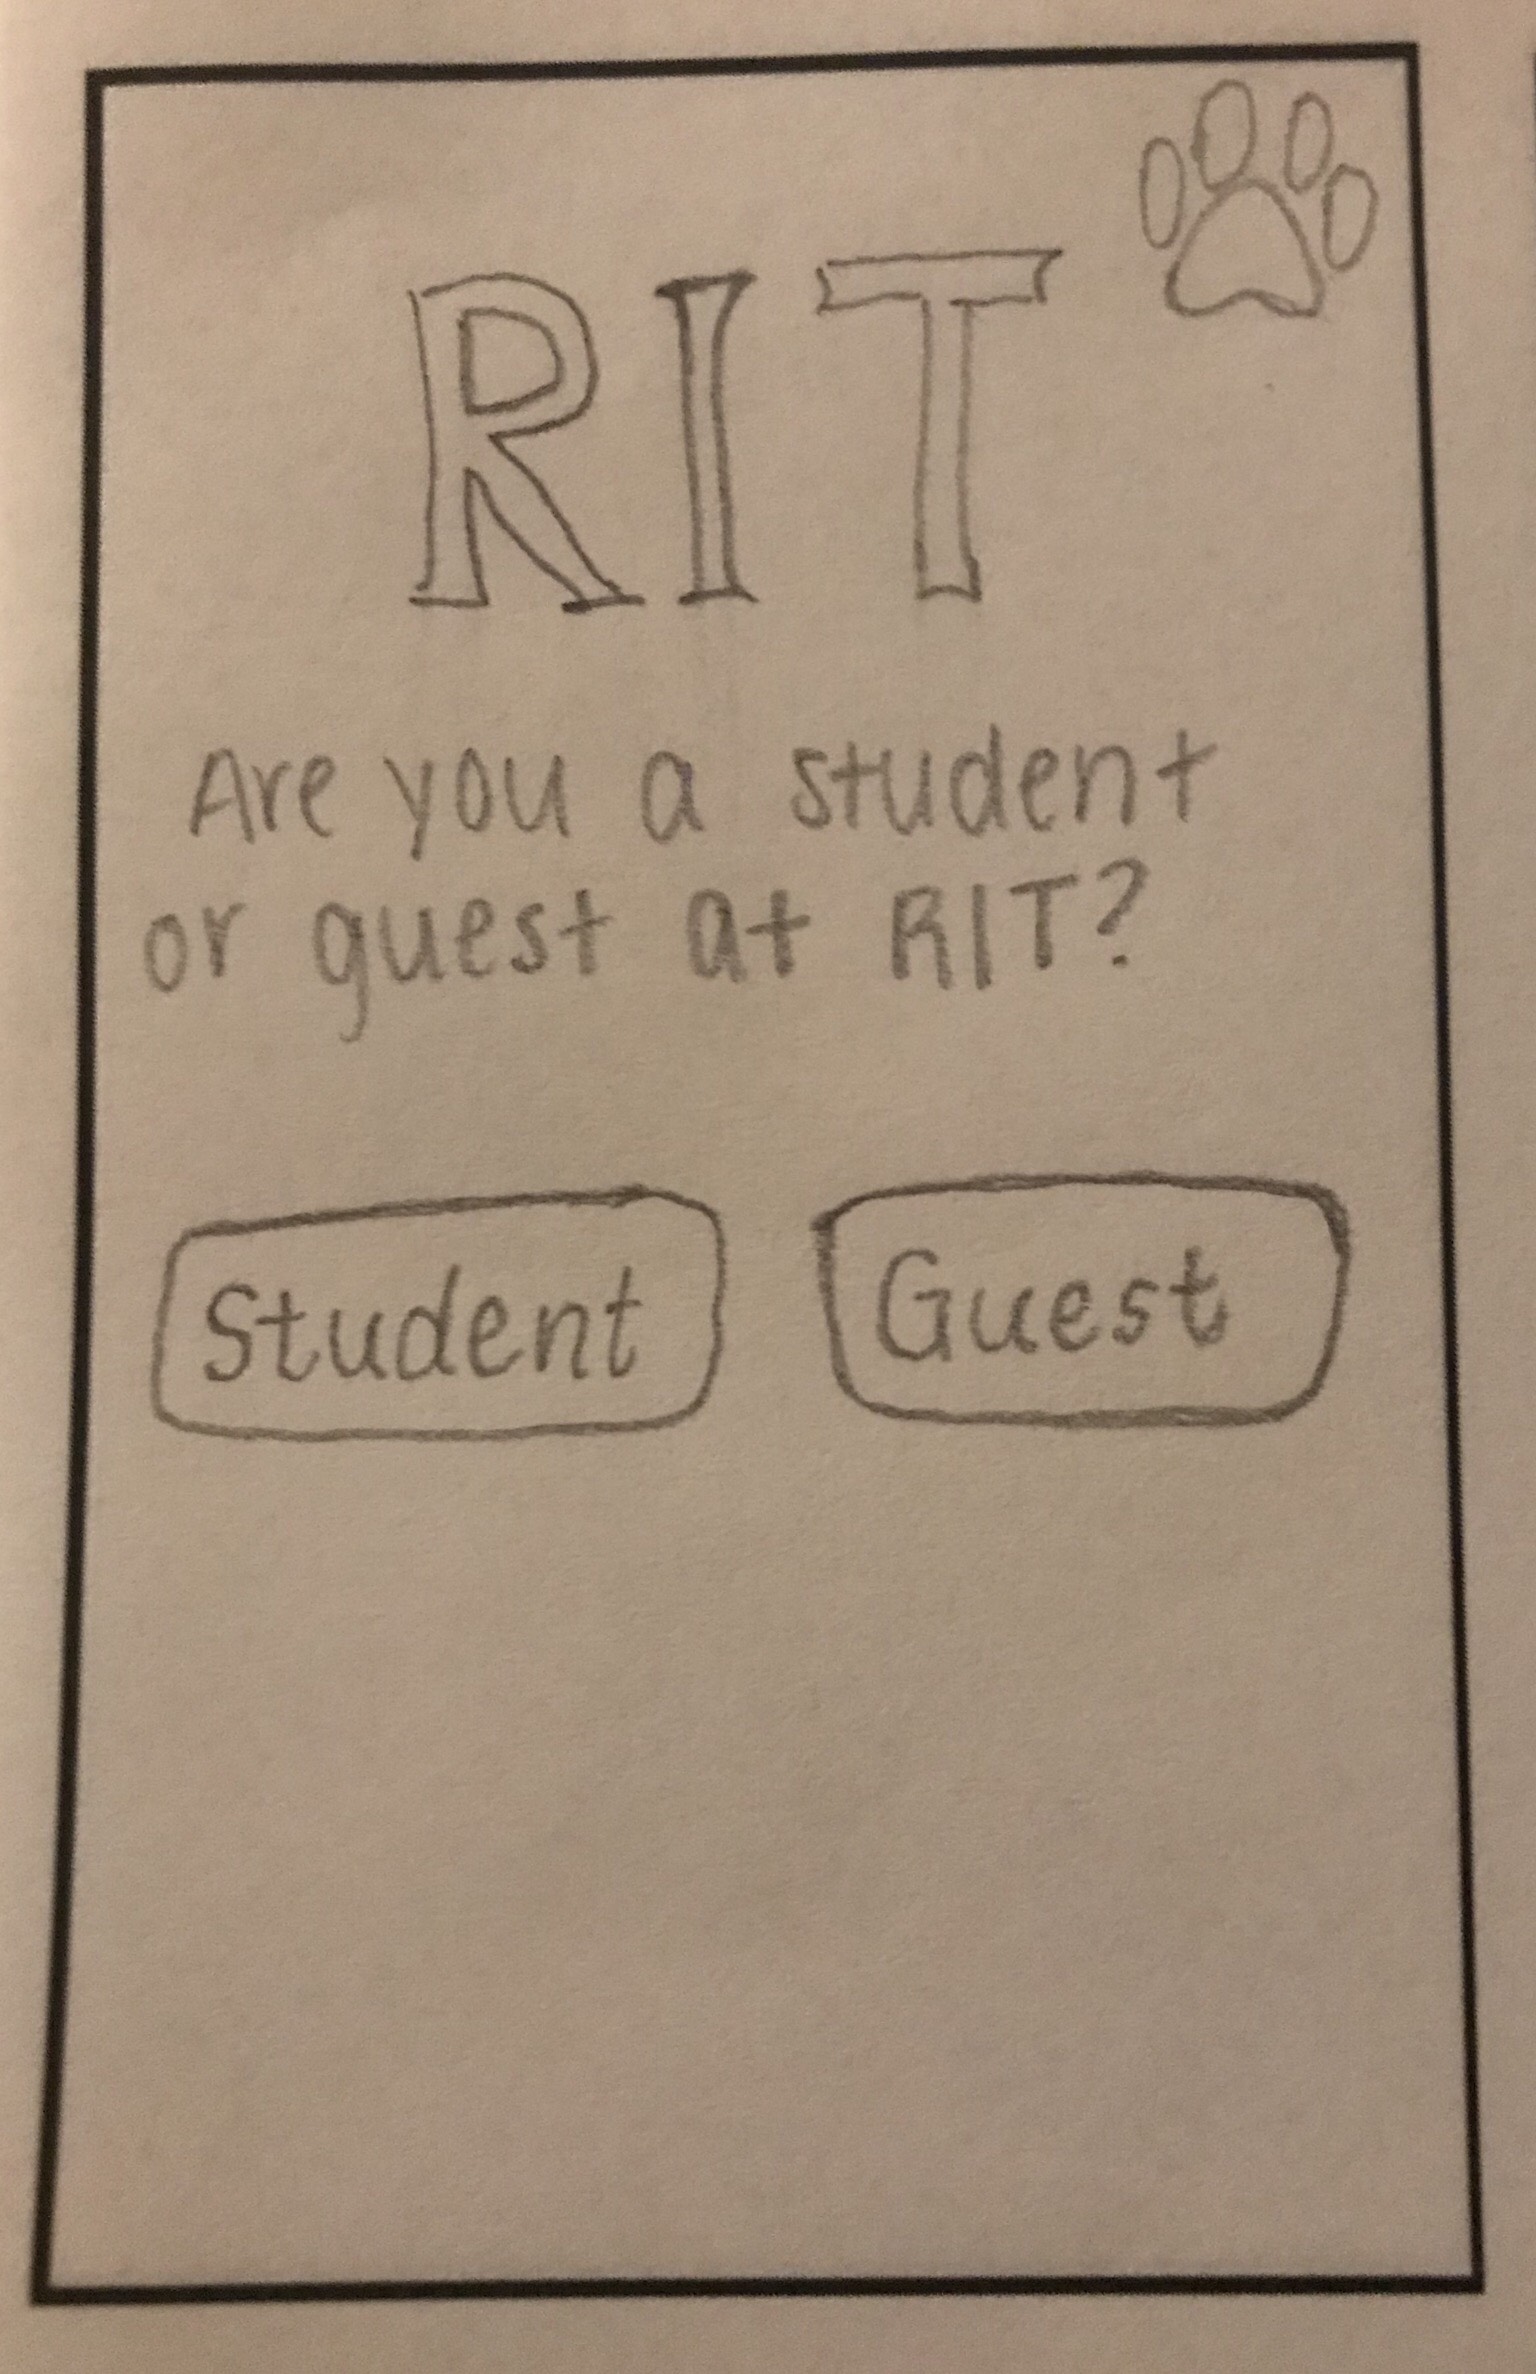 RIT
Are you a student
or guest at RIT?
Student
Guest